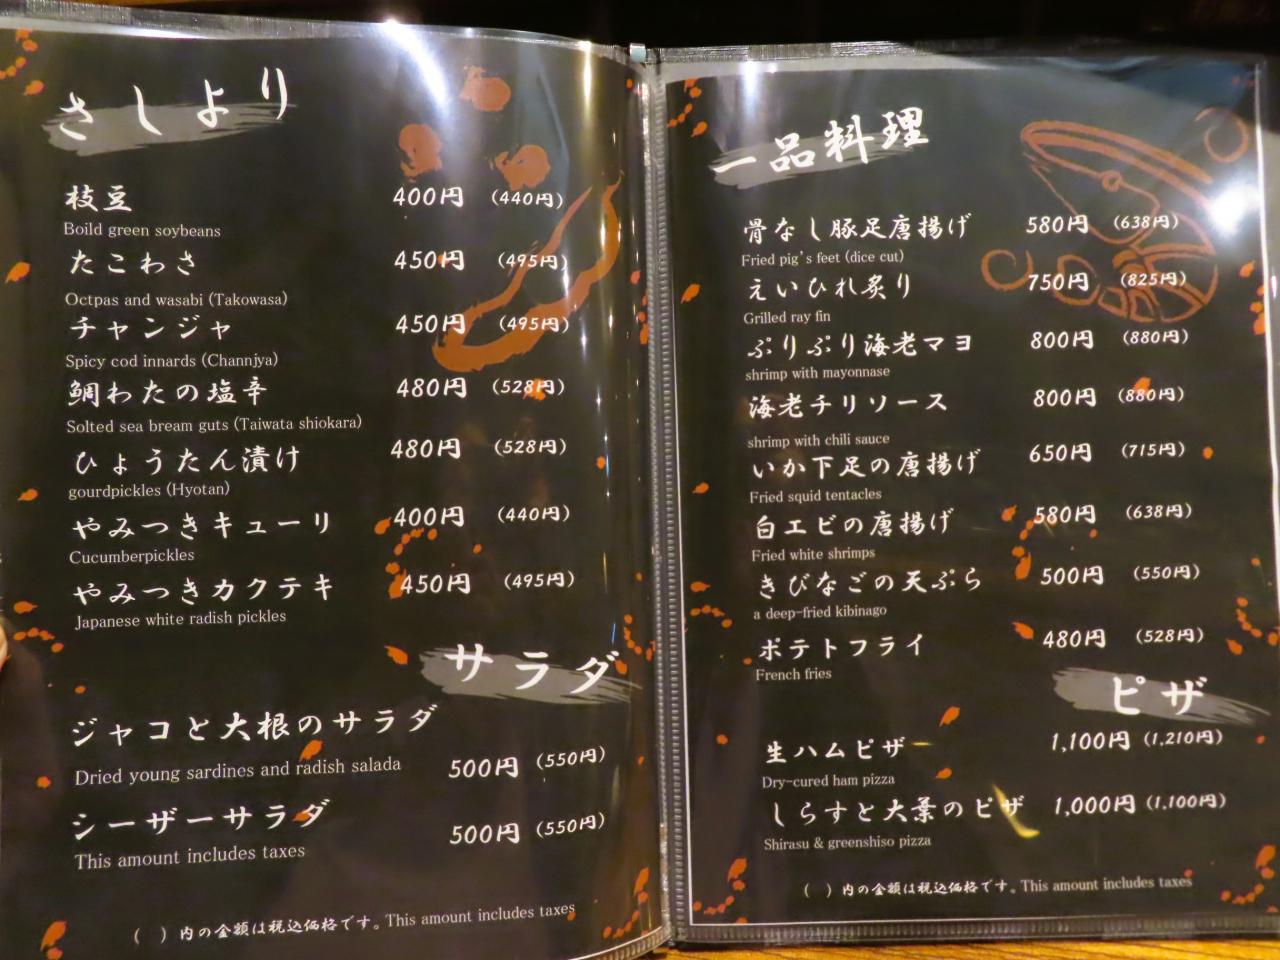 さしより
枝豆 400円 (440円)
Boild green soybeans
たこわさ 450円 (495円)
Octpas and wasabi (Takowasa)
チャンジャ 450円 (495円)
Spicy cod innards (Channjya)
鯛わたの塩辛 480円 (528円)
Solted sea bream guts (Taiwata shiokara)
ひょうたん漬け 480円 (528円)
gourdpickles (Hyotan)
やみつきキューリ 400円 (440円)
Cucumberpickles
やみつきカクテキ 450円 (495円)
Japanese white radish pickles
サラダ
ジャコと大根のサラダ
Dried young sardines and radish salada 500円 (550円)
シーザーサラダ
This amount includes taxes 500円 (550円)
( ) 内の金額は税込価格です。This amount includes taxes
一品料理
骨なし豚足唐揚げ 580円 (638円)
Fried pig's feet (dice cut)
えいひれ炙り 750円 (825円)
Grilled ray fin
ぷりぷり海老マヨ 800円 (880円)
shrimp with mayonnase
海老チリソース 800円 (880円)
shrimp with chili sauce
いか下足の唐揚げ 650円 (715円)
Fried squid tentacles
白エビの唐揚げ 580円 (638円)
Fried white shrimps
きびなごの天ぷら 500円 (550円)
a deep-fried kibinago
ポテトフライ 480円 (528円)
French fries
ピザ
生ハムピザ 1,100円 (1,210円)
Dry-cured ham pizza
しらすと大葉のピザ 1,000円 (1,100円)
Shirasu & greenshiso pizza
( ) 内の金額は税込価格です。This amount includes taxes